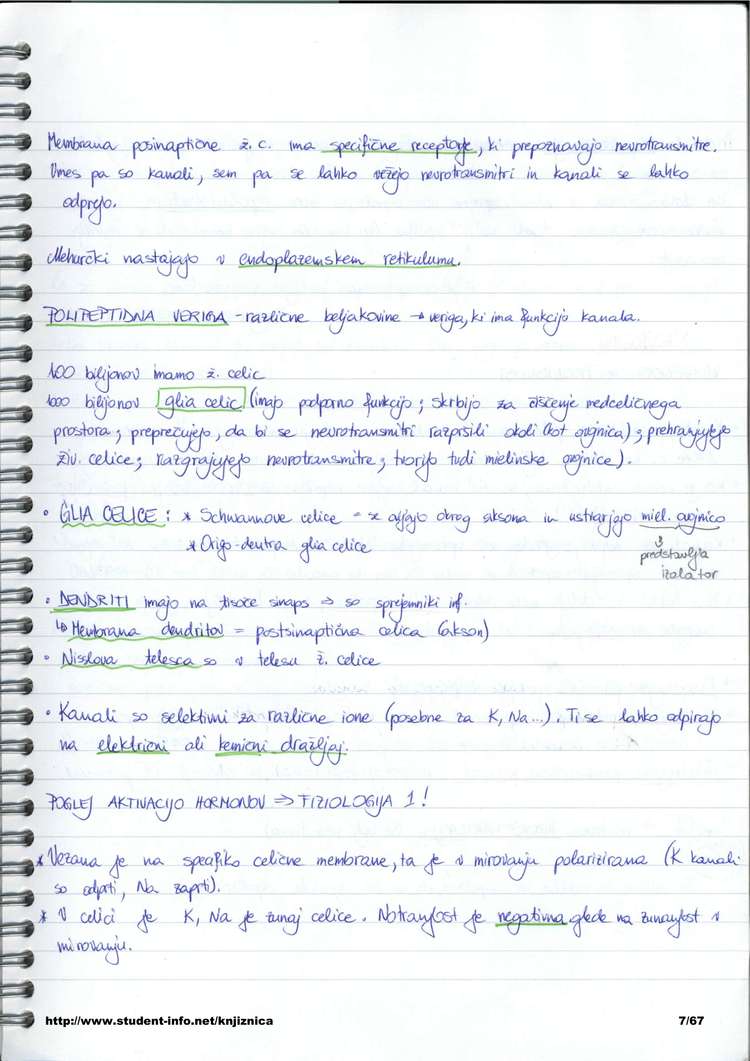 Membrana posinaptične ž.c. ima specifične receptorje, ki prepoznavajo nevrotransmitre.
Vmes pa so kanali, sem pa se lahko vežejo nevrotransmitri in kanali se lahko
odprejo.
Mehurčki nastajajo v endoplazemskem retikulumu.
POLIPEPTIDNA VERIGA - različne beljakovine → veriga, ki ima funkcijo kanala.
100 biljonov imamo ž. celic
1000 biljonov glia celic (imajo podporno funkcijo; skrbijo za čiščenje medceličnega
prostora; preprečujejo, da bi se nevrotransmitri razpršili okoli (kot ovojnica); prehranjujejo
živ. celice; razgrajujejo nevrotransmitre; tvorijo tudi mielinske ovojnice).
• GLIA CELICE: * Schwannove celice = se ovijajo okrog aksona in ustvarjajo miel. ovojnico
* Origo-dentra glia celice
↓
predstavlja
izolator
• DENDRITI imajo na tisoče sinaps ⇒ so sprejemniki inf.
↳ Membrana dendritov = postsinaptična celica (akson)
• Nisslova telesca so v telesu ž. celice
• Kanali so selektivni za različne ione (posebne za K, Na...). Ti se lahko odpirajo
na električni ali kemični dražljaj.
POGLEJ AKTIVACIJO HORMONOV ⇒ FIZIOLOGIJA 1!
* Vezana je na specifiko celične membrane, ta je v mirovanju polarizirana (K kanali
so odprti, Na zaprti).
* V celici je K, Na je zunaj celice. Notranjost je negativna glede na zunanjost v
mirovanju.
http://www.student-info.net/knjiznica
7/67